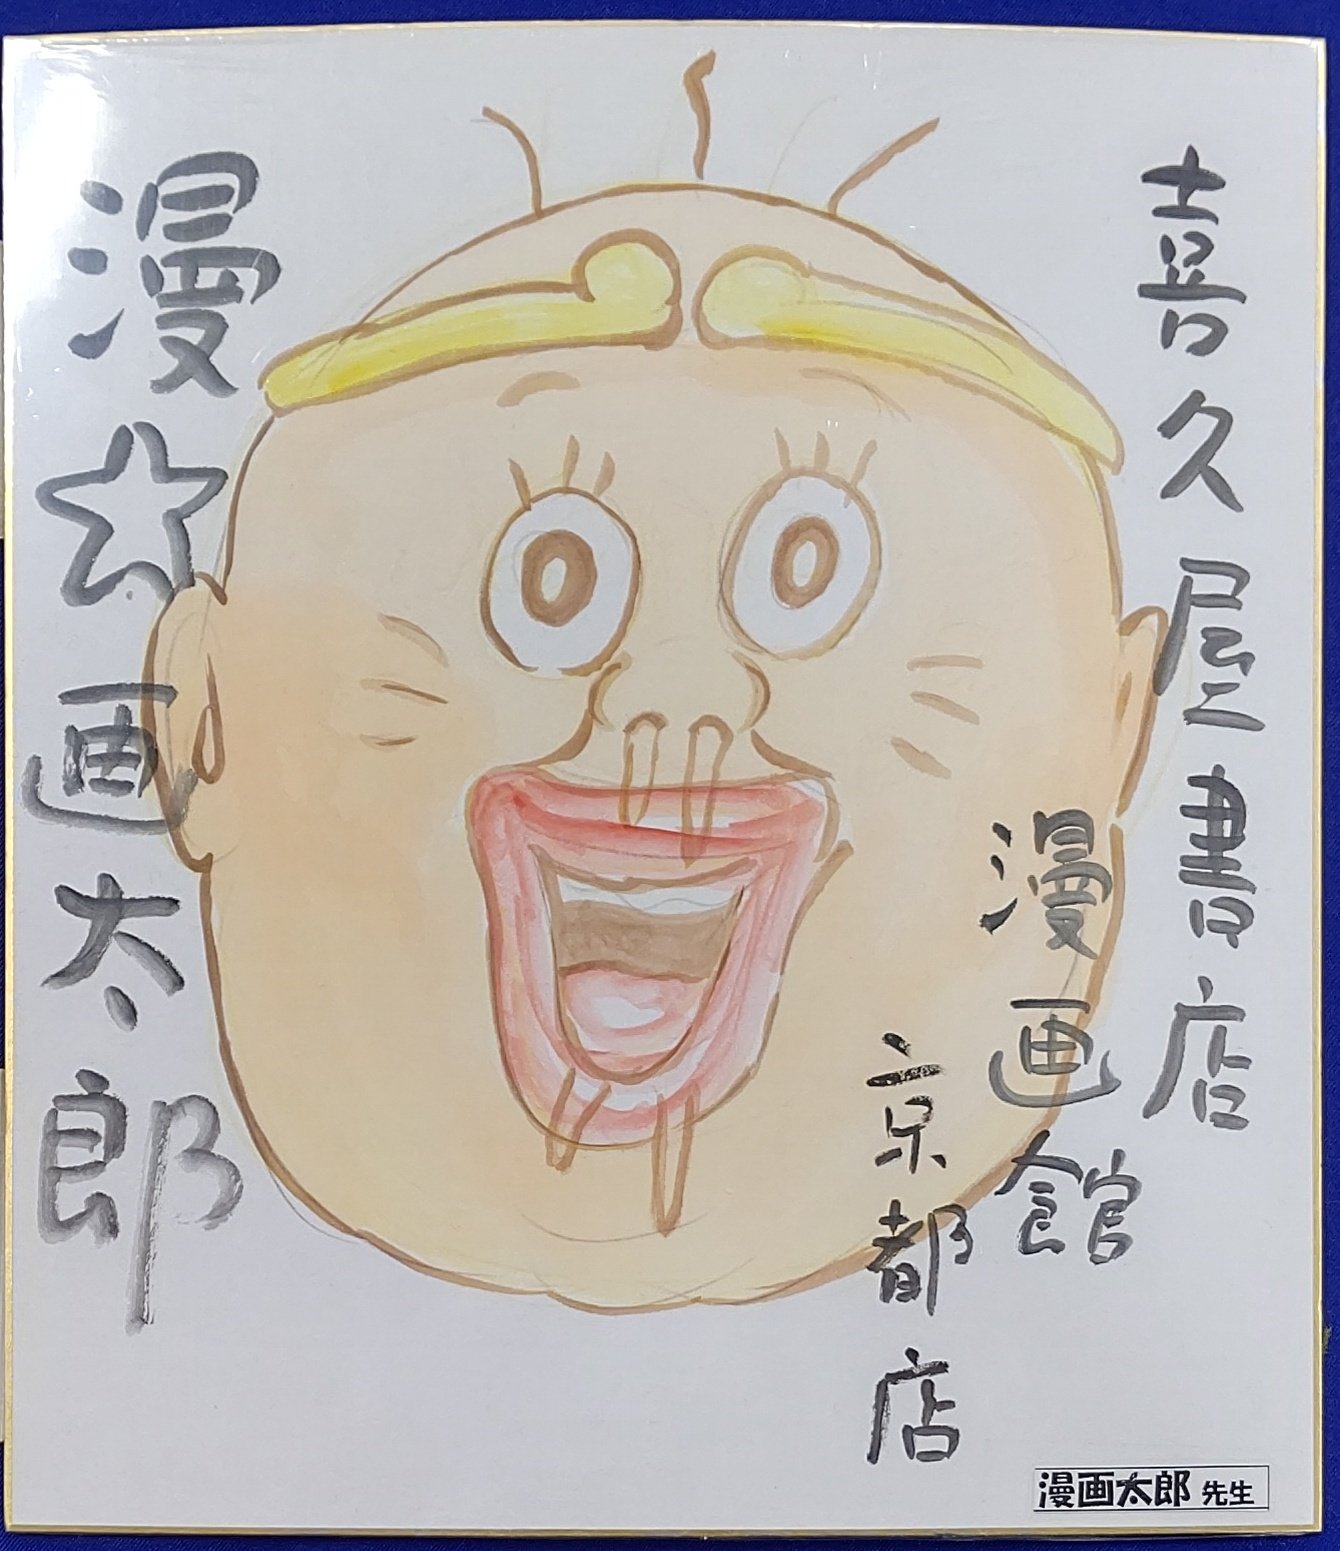 喜久屋書店
漫画館
京都店
漫☆画太郎
漫画太郎 先生